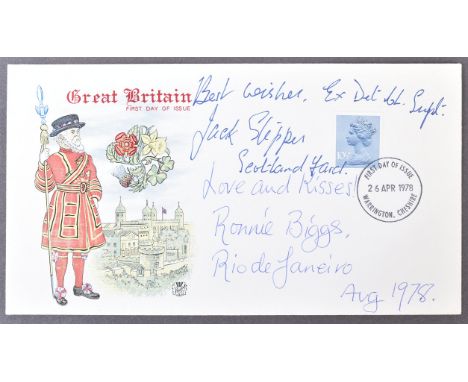 Great Britain
FIRST DAY OF ISSUE
Best wishes, Ex Det. Ch. Supt.
Jack Slipper
Scotland Yard.
Love and Kisses!
Ronnie Biggs,
Rio de Janeiro
Aug 1978.
FIRST DAY OF ISSUE
26 APR 1978
WARRINGTON, CHESHIRE